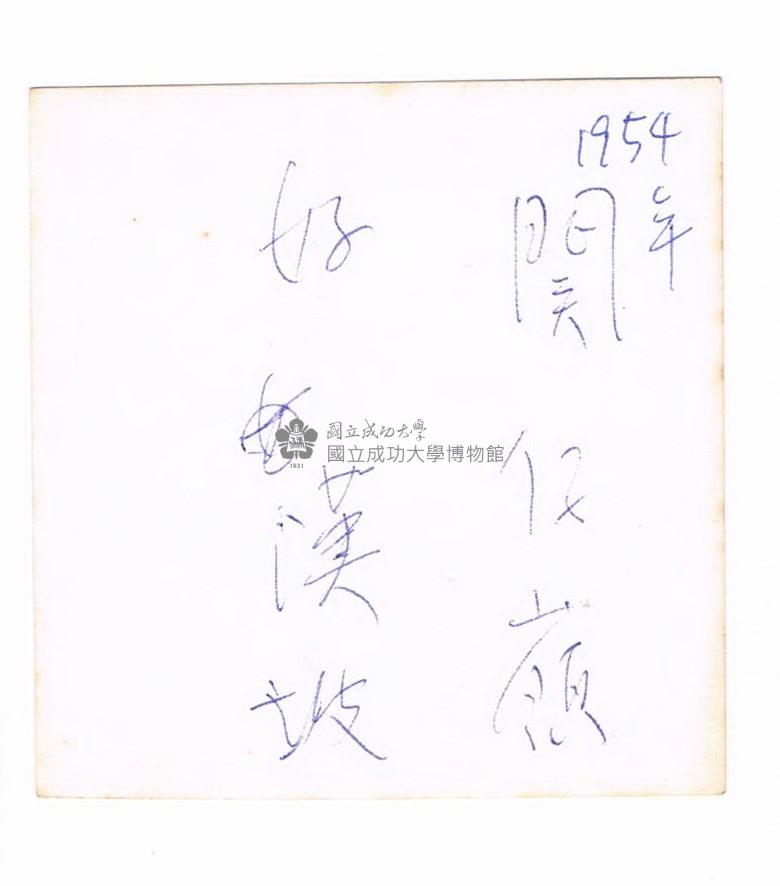 1954年
関仔嶺
好漢坡
國立成功大學
國立成功大學博物館
1931